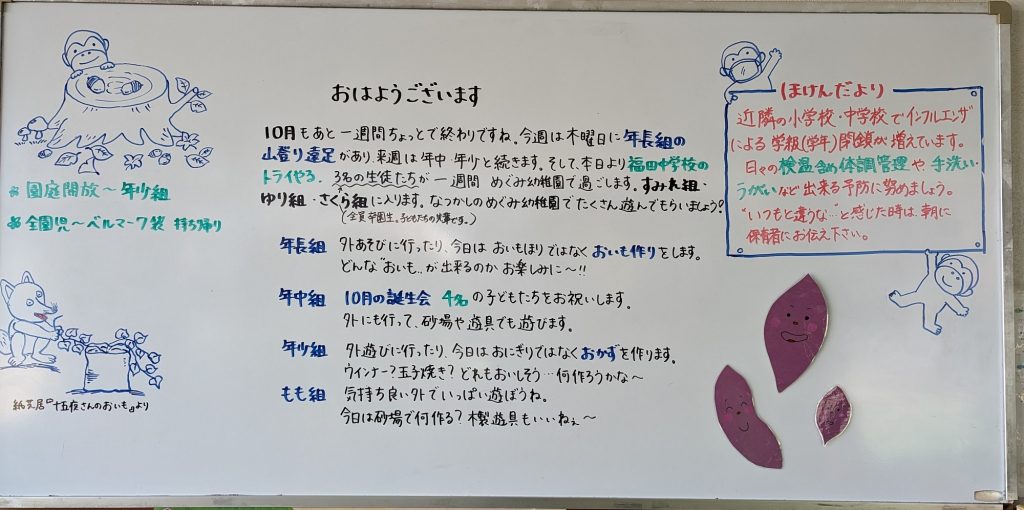 おはようございます
10月もあと一週間ちょっとで終わりですね。今週は木曜日に年長組の
山登り遠足があり、来週は年中・年少と続きます。そして、本日より福田中学校の
トライやる、3名の生徒たちが一週間 めぐみ幼稚園で過ごします。すみれ組・
ゆり組・さくら組に入ります。なつかしのめぐみ幼稚園でたくさん遊んでもらいましょう?
(全員卒園生。子どもたちの大事です。)
年長組 外あそびに行ったり、今日は おいもほりではなく おいも作りをします。
どんな"おいも"が出来るのか お楽しみに〜!!
年中組 10月の誕生会 4名の子どもたちをお祝いします。
外にも行って、砂場や遊具でも遊びます。
年少組 外遊びに行ったり、今日はおにぎりではなくおかずを作ります。
ウインナー?玉子焼き?どれもおいしそう…何作ろうかな〜
もも組 気持ち良い外でいっぱい遊ぼうね。
今日は砂場で何作る?木製遊具もいいねぇ〜
※園庭開放〜年少組
※全園児〜ベルマーク袋 持ち帰り
紙芝居『十五夜さんのおいも』より
ほけんだより
近隣の小学校・中学校でインフルエンザ
による 学級(学年)閉鎖が増えています。
日々の検温含め体調管理や 手洗い・
うがいなど出来る予防に努めましょう。
"いつもと違うな…"と感じた時は、朝に
保育者にお伝え下さい。